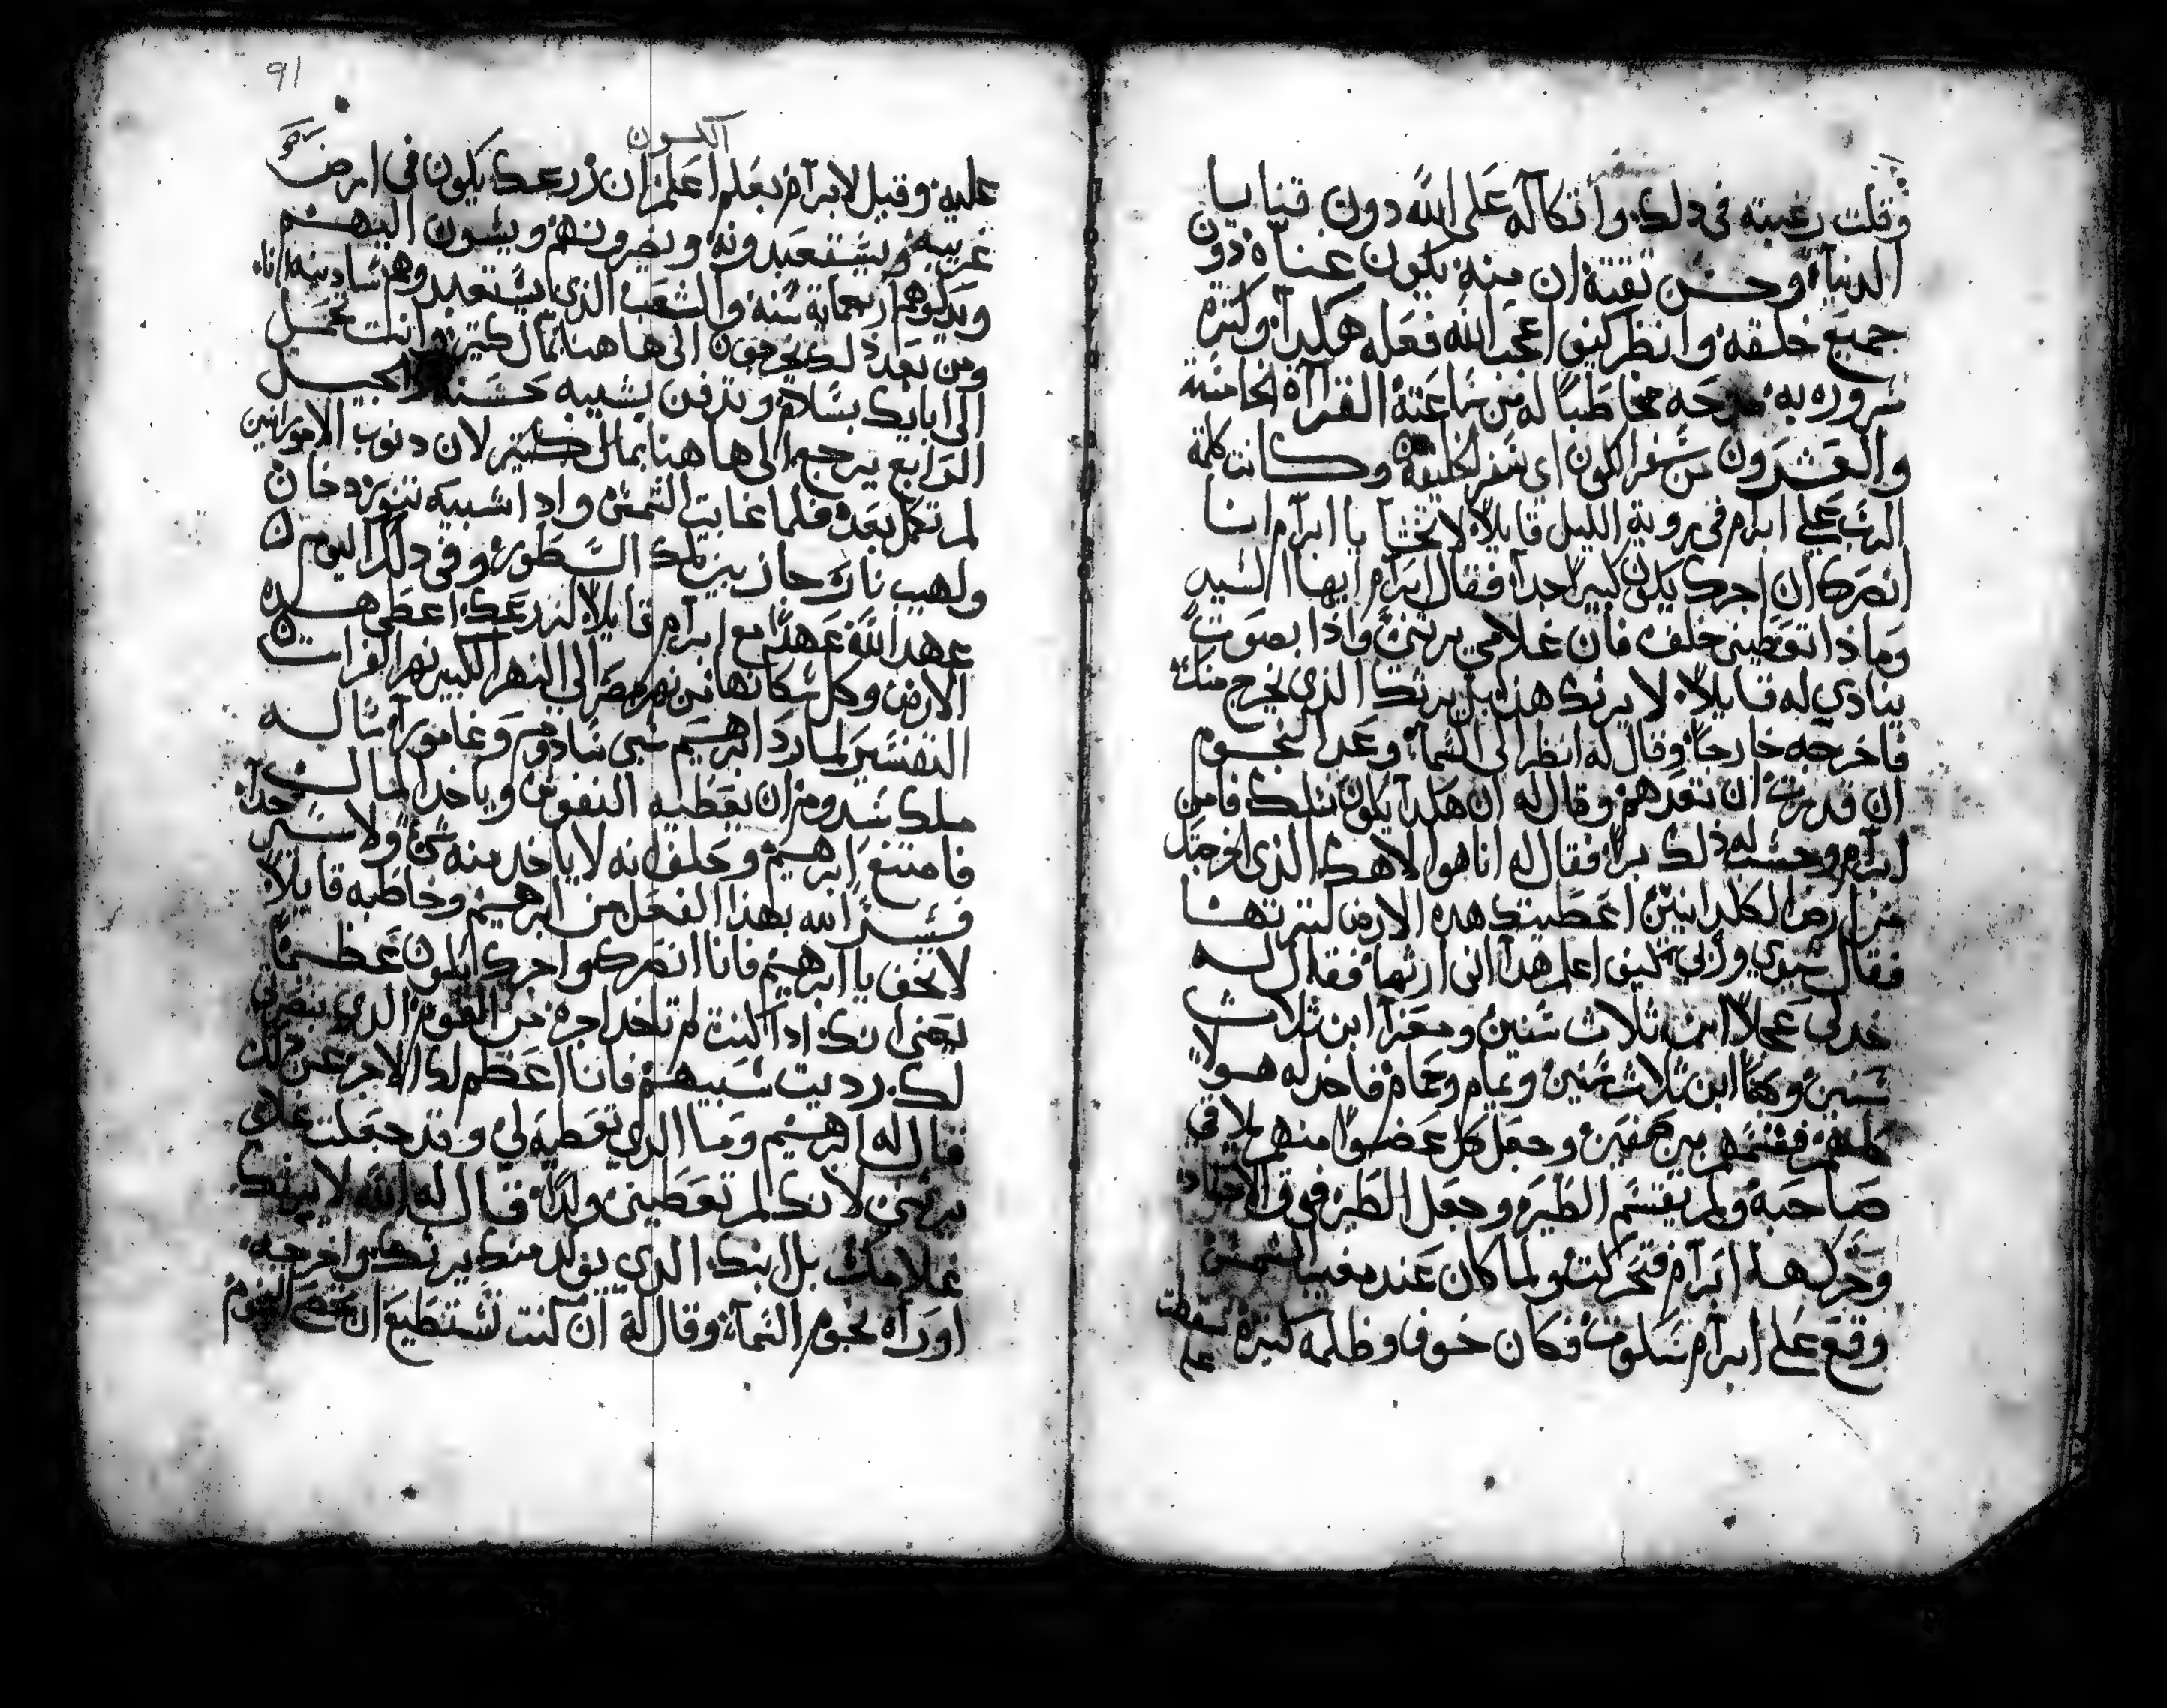 وقلت رغبته في دلك واتكاله على الله دون قنايا
الدنيا وحسن تقته ان منه يكون عناه دون
جميع خلقه وانظر كيف اعجب الله فعله هكدا وكثره
سروره به مدحه مخاطبًا له من ساعته القراآة الخامسة
والعشرون من سفر الكون اي سفر الخليقة وكانت كلمة
الرب على ابرام في روية الليل قايلاً لا تخشا يا ابرام انا
انصرك ان اجرك يكون كبير اجدا فقال ابرام ايها السيد
وماذا تعطيني خلف فان غلامي يرتني واذا بصوت
ينادي له قايلاً لا يرثك هذا بل يرثك الذي يخرج منك
فاخرجه خارجا وقال له انظر الى السما وعد النجوم
ان قدرت ان تعدهم وقال له ان هكدا يكون نسلك فامن
ابرام وحسب له ذلك برا فقال له انا هو الاهك الذي اخرجتك
من ارض الكلدانيين اعطيتك هده الارض لترتها
فقال سيدي وربي كيف اعلم هدا اني ارثها فقال له
خد لي عجلاً ابن ثلاث سنين ومعزا ابن ثلاث
سنين وكبشا ابن ثلاث سنين ويمام وحمام فاخد له هولا
كلهم فقسمهم بين نصفين وجعل كل عضوا منهم يلاقي
صاحبه ولم يقسم الطير وجعل الطير فوق الاجساد
وحركها ابرام فتحركت ولما كان عند مغيب الشمس
وقع على ابرام سكوت فكان خوف وظلمه كثيره سقطت
على
91
الكون
عليه وقيل لابرام بعلم اعلم ان زرعك يكون في ارض
غريبه ويستعبدونه ويضرونهم ويسون اليهم
ويدلوهم اربعماية سنه والشعب الذي يستعبدوهم سادينه انا
ومن بعد ذلك يخرجون الى هاهنا بمال كتير وانت تحمل
الى اباك بسلام وتدفن بشيبه حسنه والجيل
الرابع يرجع الى هاهنا بمال كتير لان دنوب الامورانيين
لم تكمل بعد فلما غابت الشمس واذا شبيه تنور دخان
ولهيب نار جاز بين تلك السطور وفي دلك اليوم
عهد الله عهدًا مع ابرام قايلاً لزرعك اعطي هده
الارض وكل سكانها من نهر مصر الى النهر الكبير نهر الفرات
التفسير لما رد ابرهيم سبي سادوم وغامورا ساله
ملك سدوم ان يعطيه النفوس وياخد المال
فامتنع ابرهيم وحلف انه لا ياخد منه شيً ولا شي جدا
فسر الله بهذا الفعل من ابرهيم وخاطبه قايلاً
لا تخف يا ابرهيم فانا انصرك واجرك ايكون عظيمًا
يعني انك اذا كنت لم تاخد اجره من القوم الدي بنصرتي
لك رديت سبيهم فانا اعظم لك الاجر عن ذلك
قال له ابرهيم وما الدي تعطيه لي وقد جعلت غلامي
يرثني لانك لم تعطيني ولدًا قال له الله لا يرتك
غلامك بل ابنك الدي يولد منك يرثك واخرجه
اوراه نجوم السماء وقال له ان كنت تستطيع ان تحصى النجوم